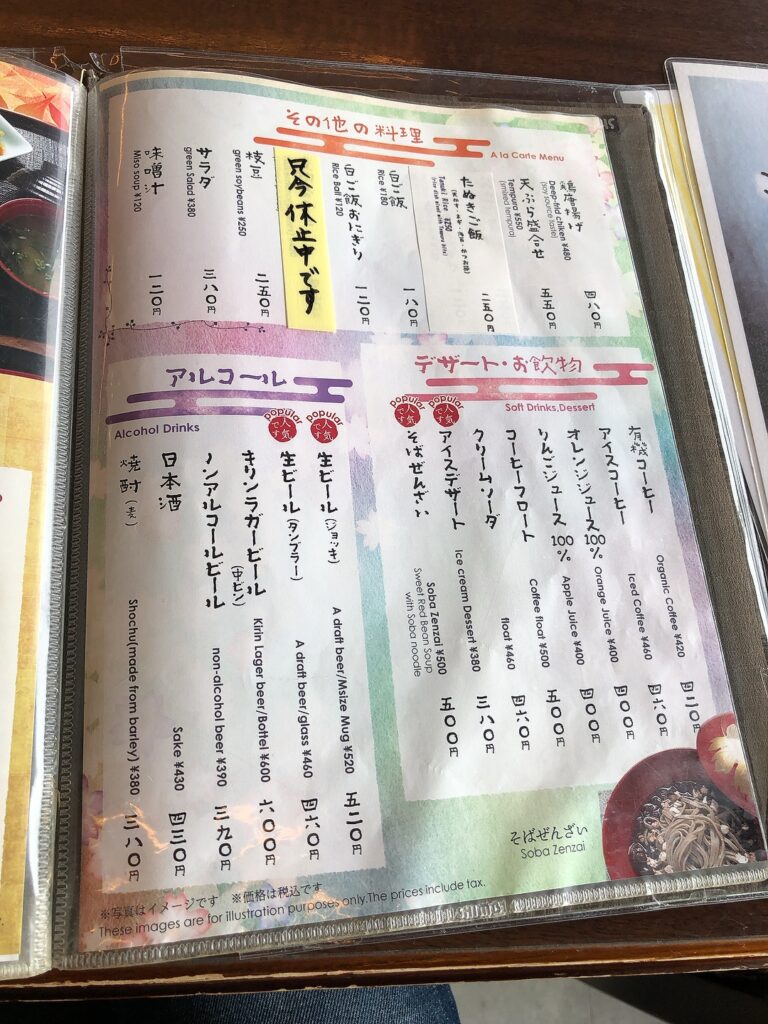 その他の料理
A la Carte Menu
鶏唐揚げ
Deep-frid chiken ¥480
(soy source taste)
四八〇円
天ぷら盛合せ
Tempura ¥550
(mixed tempura)
五五〇円
たぬきご飯
Tanuki Rice ¥250
二五〇円
白ご飯
Rice ¥180
一八〇円
白ご飯おにぎり
Rice Ball ¥120
一二〇円
只今休止中です
枝豆
green soybeans ¥250
二五〇円
サラダ
green Salad ¥380
三八〇円
味噌汁
Miso soup ¥120
一二〇円
デザート・お飲物
Soft Drinks,Dessert
有機コーヒー
Organic Coffee ¥420
四二〇円
アイスコーヒー
Iced Coffee ¥460
四六〇円
オレンジジュース100%
Orange Juice ¥400
四〇〇円
りんごジュース100%
Apple Juice ¥400
四〇〇円
コーヒーフロート
Coffee float ¥500
五〇〇円
クリームソーダ
float ¥460
四六〇円
popular
人気です
アイスデザート
Ice cream Dessert ¥380
三八〇円
popular
人気です
そばぜんざい
Soba Zenzai ¥500
Sweet Red Bean Soup
with Soba noodle
五〇〇円
そばぜんざい
Soba Zenzai
アルコール
Alcohol Drinks
popular
人気です
生ビール(ジョッキ)
A draft beer/Msize Mug ¥520
五二〇円
popular
人気です
生ビール(タンブラー)
A draft beer/glass ¥460
四六〇円
キリンラガービール(中ビン)
Kirin Lager beer/Bottel ¥600
六〇〇円
ノンアルコールビール
non-alcohol beer ¥390
三九〇円
日本酒
Sake ¥430
四三〇円
焼酎(麦)
Shochu(made from barley) ¥380
三八〇円
※写真はイメージです ※価格は税込です
These images are for illustration purposes only.The prices include tax.